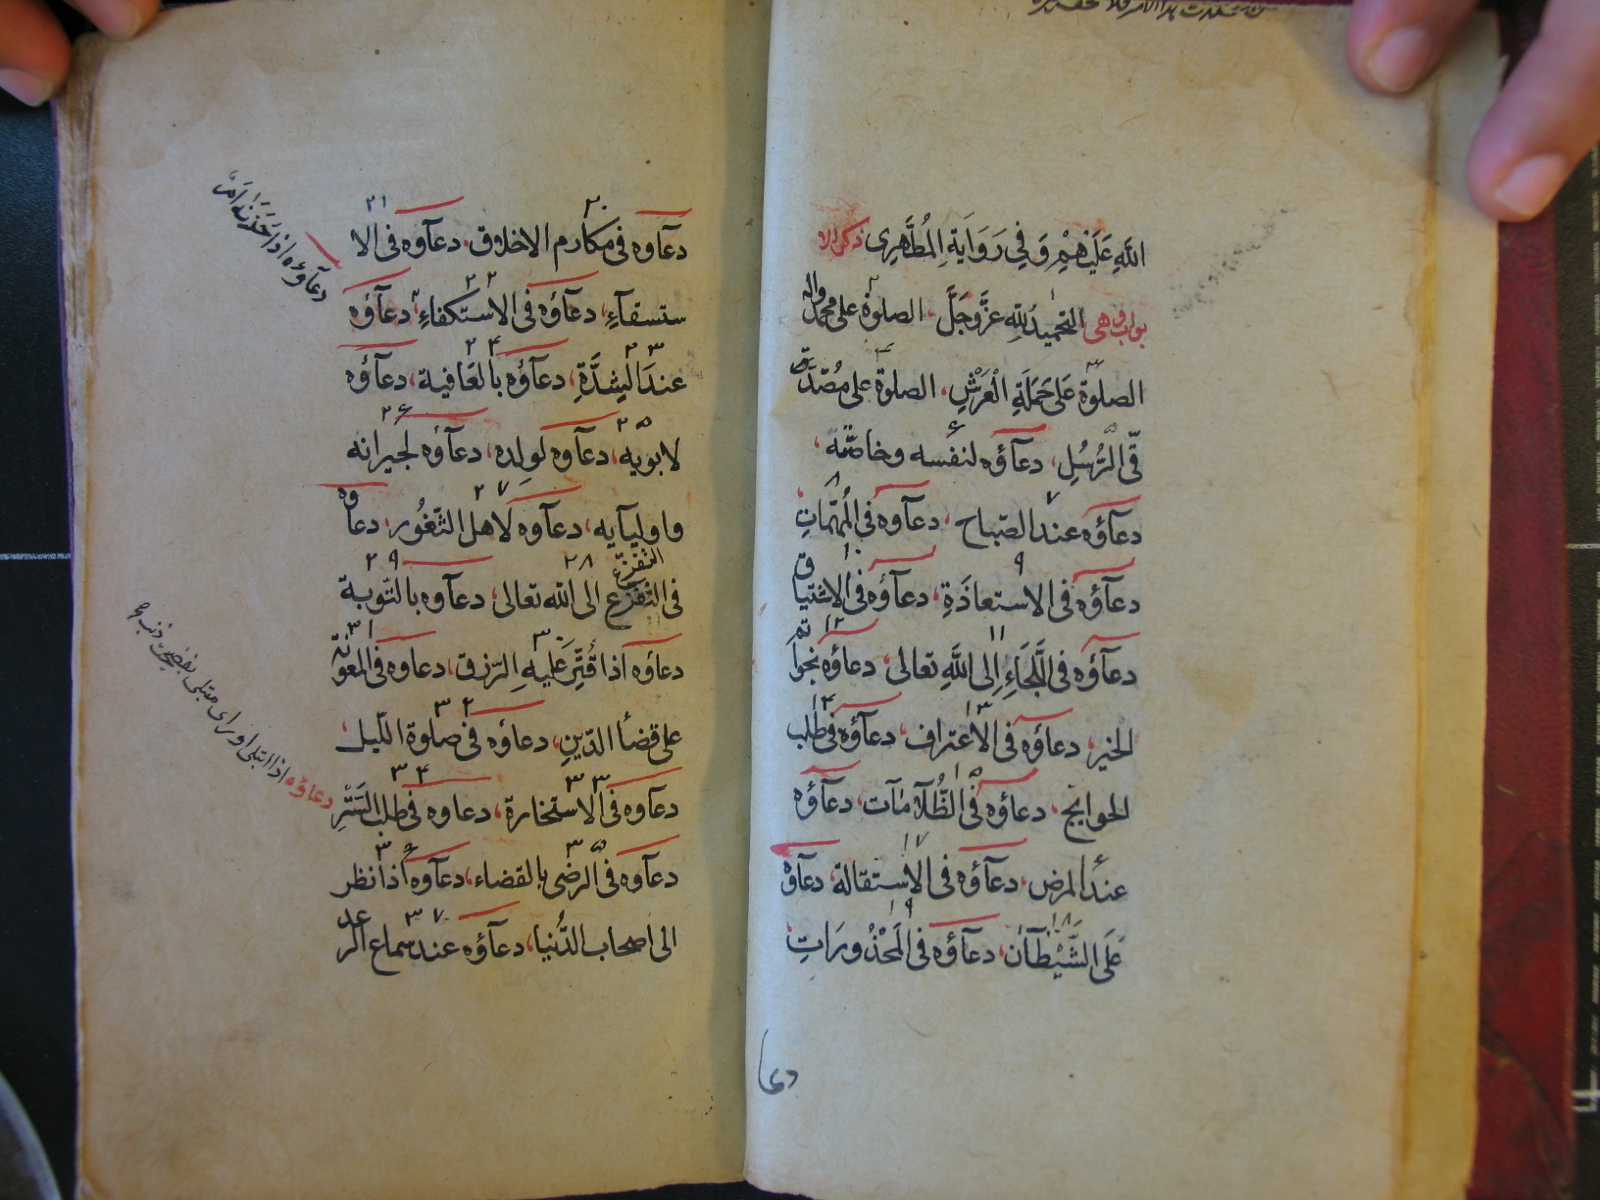 اللهِ عَلَيْهِمْ وَفِي رَوَايَةِ المُطَّهِرِى ذكر الا
بواب وهى التحميدُ لِلّهِ عزَّوَجَلَّ، الصلوة على محمد واله
الصلوٰة عَلى حَمَلَةِ الْعَرْشِ، الصلوة على مُصَدّ
قّى الرُّسُلِ، دعآؤه لنفسه وخاصّته،
دعآؤه عند الصّباح، دعآوه فى المُهِمّاتِ
دعآؤه فى الاستعاذَةِ، دعآؤه فى الاشتياق
دعآؤه فى اللَّجَاءِ اِلى اللَّهِ تعالى، دعاؤه بخواتم
الخير، دعاؤه فى الاعتراف، دعآؤه فى طلب
الحوايج، دعاؤه فى الظُّلَامٰات، دعآؤه
عند المرض، دعآؤه فى الاستقالة، دعآؤه
عَلَى الشَّيْطَان، دعآؤه فى المَحْذُورَاتِ
دعا
دعآوه فى مكارم الاخلاق، دعآوه فى الا
ستسقآءِ، دعآؤه فى الاستكفاءِ، دعآؤه
عندَ الشِدَّةِ، دعآؤه بالعَافية، دعآؤه
لابويه، دعآوه لوِلِده، دعآؤه لجيرانه
واوليآيه، دعآوه لاهل الثّغُور، دعآوه
التفزّع
فى التفزّع الى الله تعالى، دعآوه بالتّوبة
دعاؤه اذا قُتِّرَ عَليهِ الرّزق، دعاوه فى المعونة
على قضآ الدّينِ، دعاؤه فى صلوة اللّيل
دعآوه فى الاستخارة، دعاوه فى طلب السَتْرِ
دعآوه فى الرضى بالقضاء، دعآوه اذا نظر
الى اصحاب الدُّنيا، دعآؤه عند سماع الرعد
دعآؤه اذا حَزَنَهُ اَمرٌ
دعاؤه اذا ابتلى او راى مبتلى بفضيحة بذنب